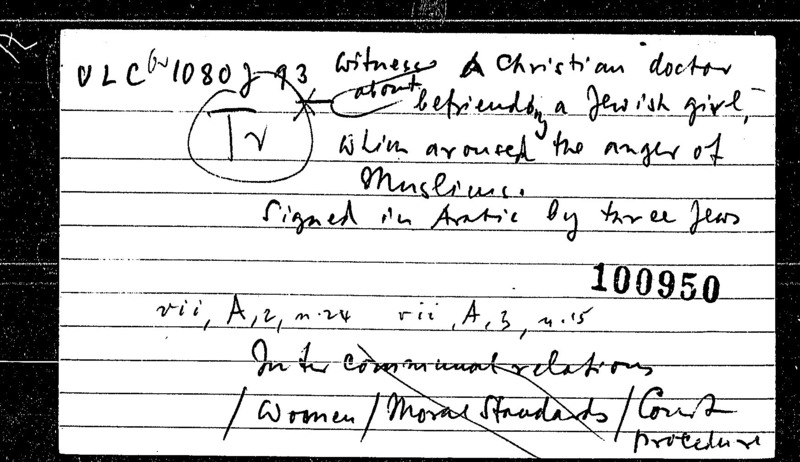 ULC Or 1080 J 93 witness about A Christian doctor
befriending a Jewish girl,
Tr
which aroused the anger of
Muslims.
Signed in Arabic by three Jews
100950
vii, A, 2, n. 24 vii, A, 3, n. 15
Inter communal relations
/ Women / Moral Standards / Court
procedure